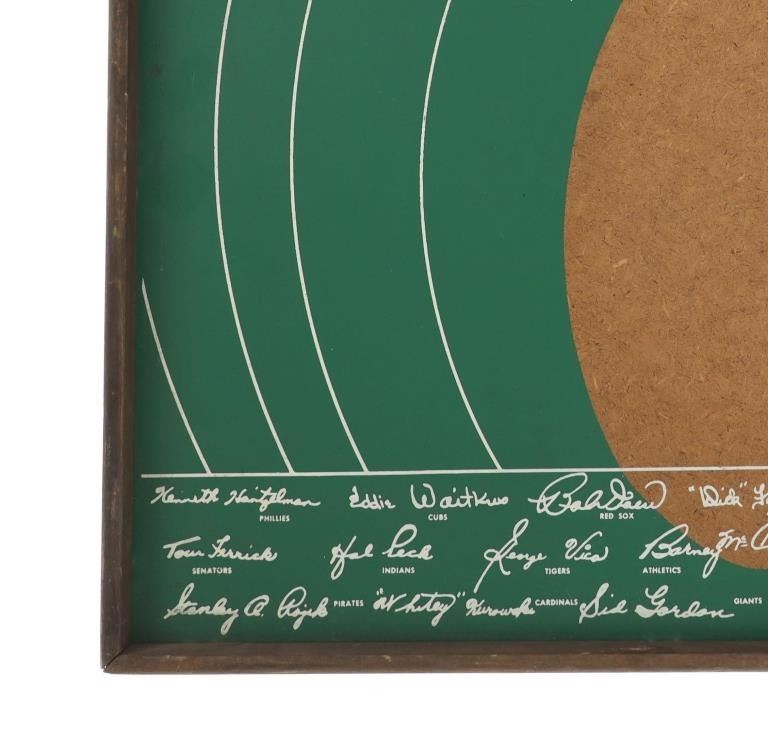 Kenneth Heintzelman Eddie Waitkus Bob "Dick"
PHILLIES CUBS RED SOX
Tom Ferrick Hal Peck George Vico Barney Mc
SENATORS INDIANS TIGERS ATHLETICS
Stanley A. Rojek PIRATES "Whitey" Kurowski CARDINALS Sid Gordon GIANTS